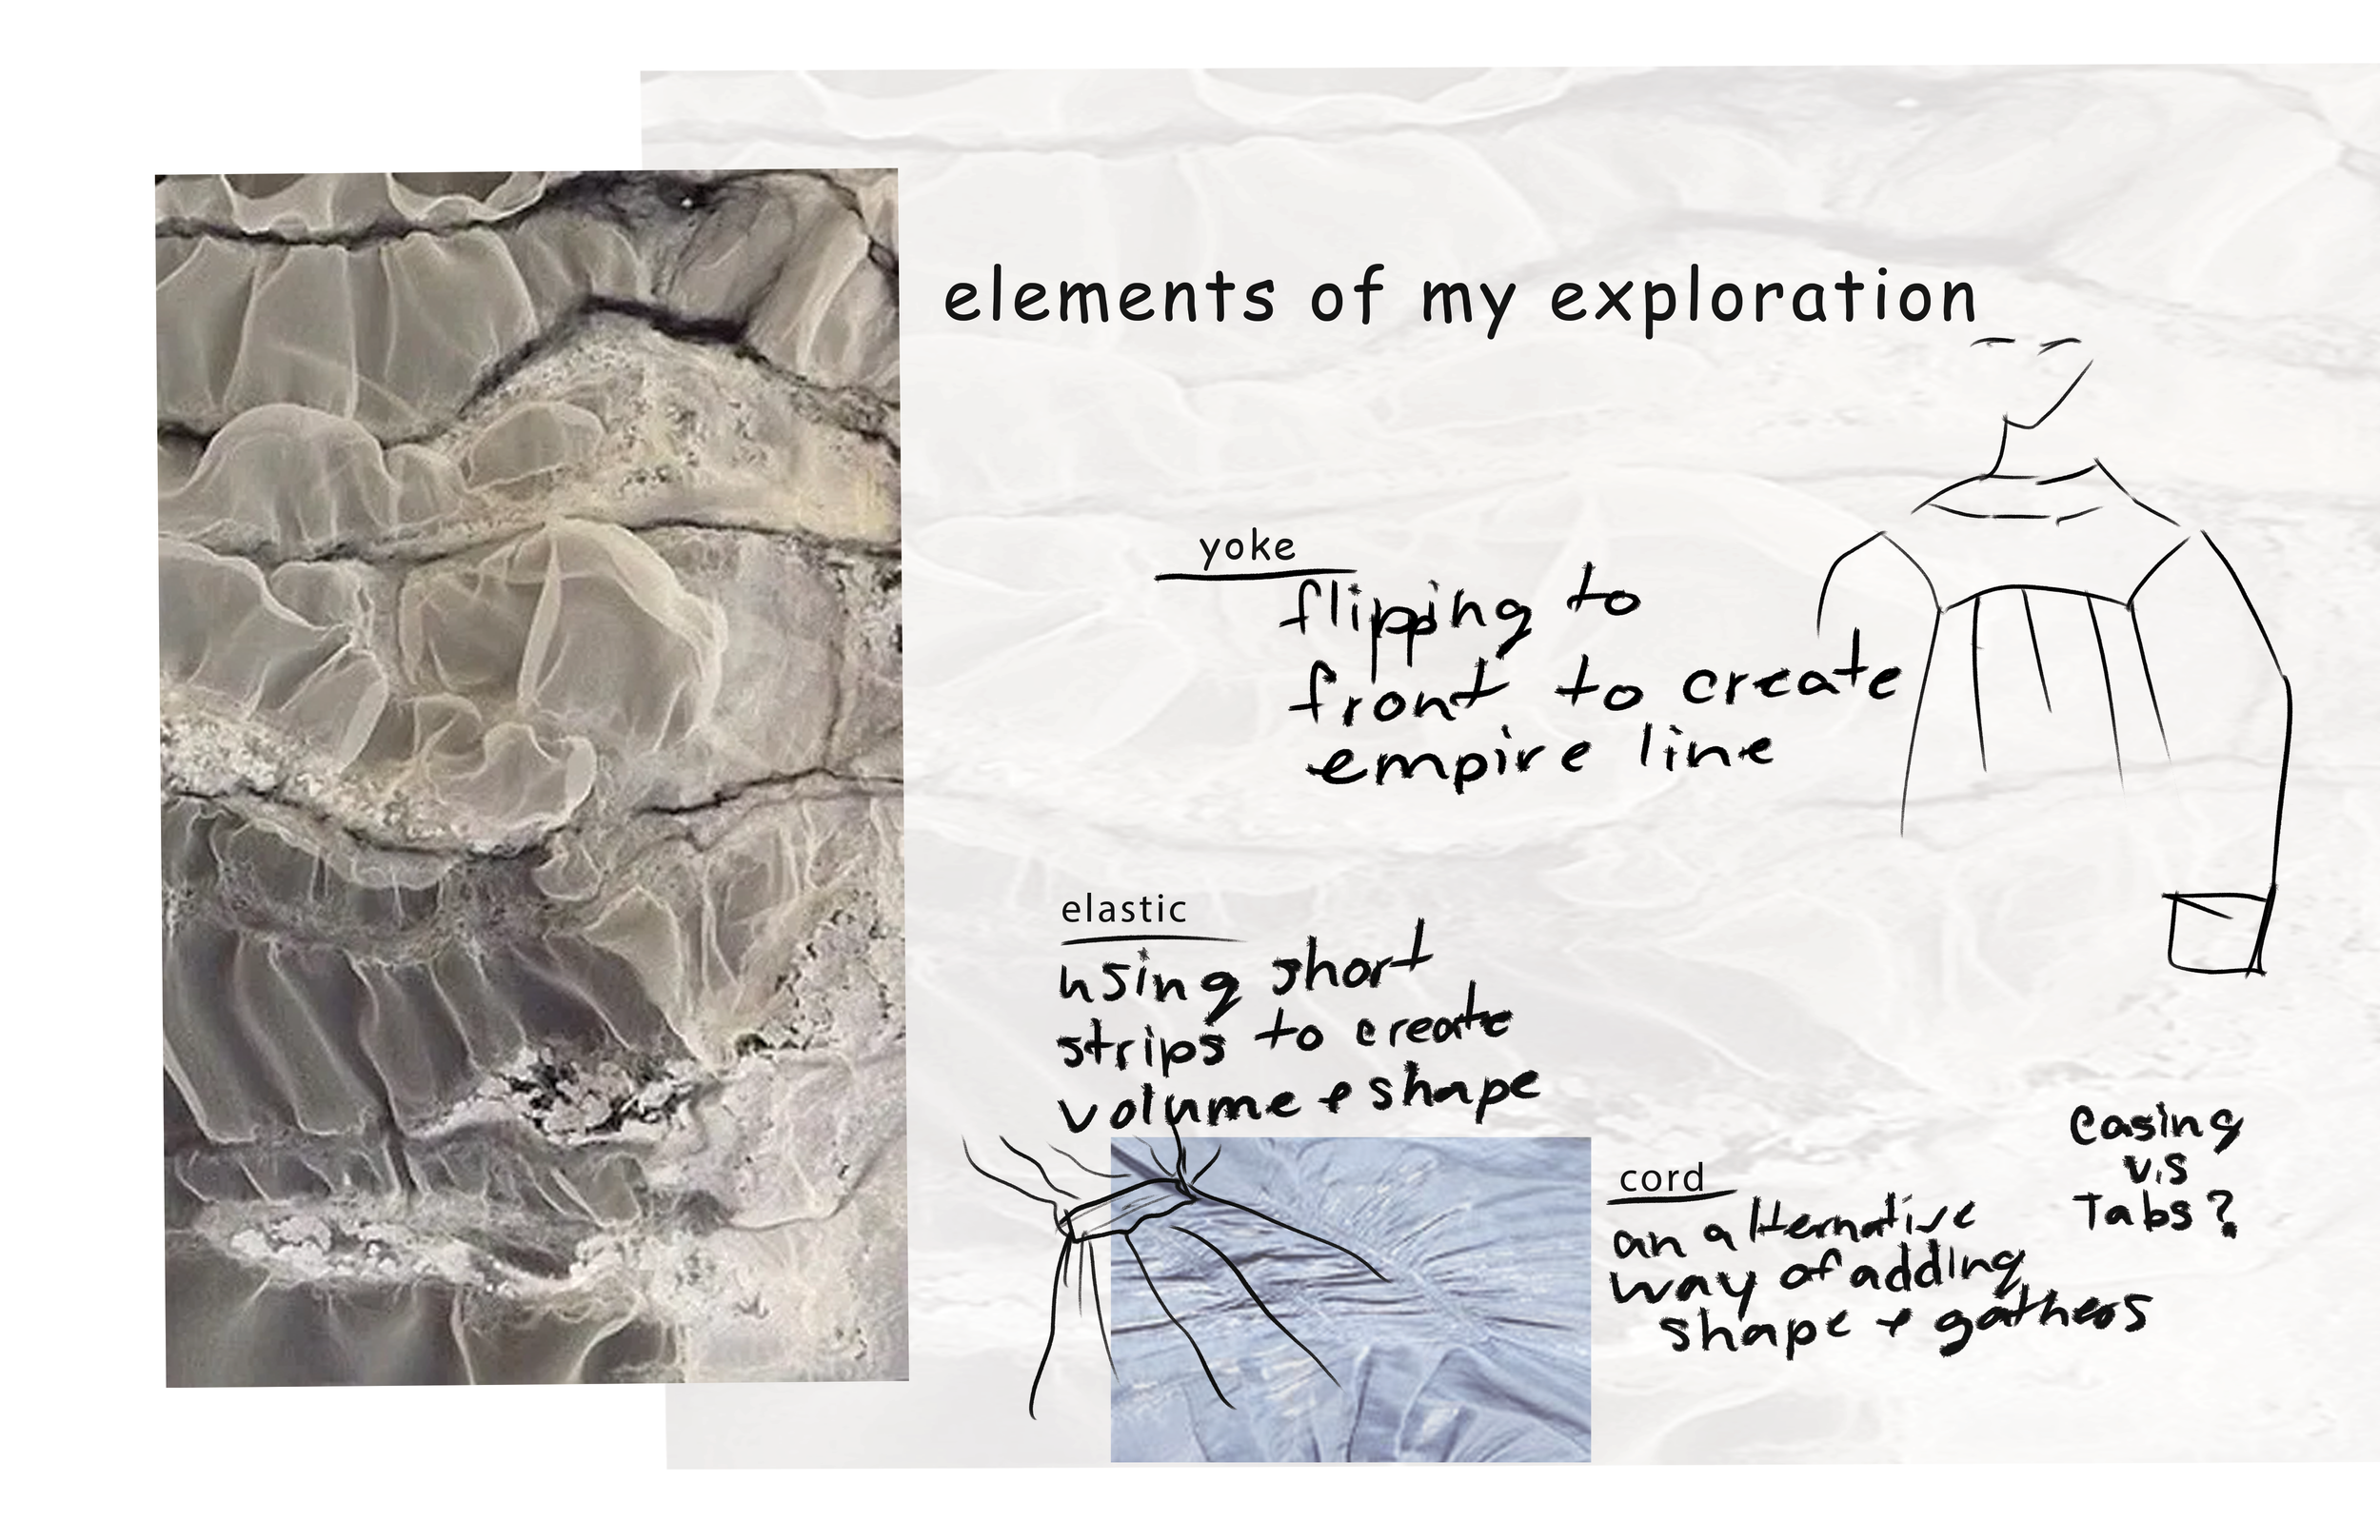 elements of my exploration
yoke
flipping to
front to create
empire line
elastic
using short
strips to create
volume + shape
cord
an alternative
way of adding
shape + gathers
Casing
v.s
Tabs?